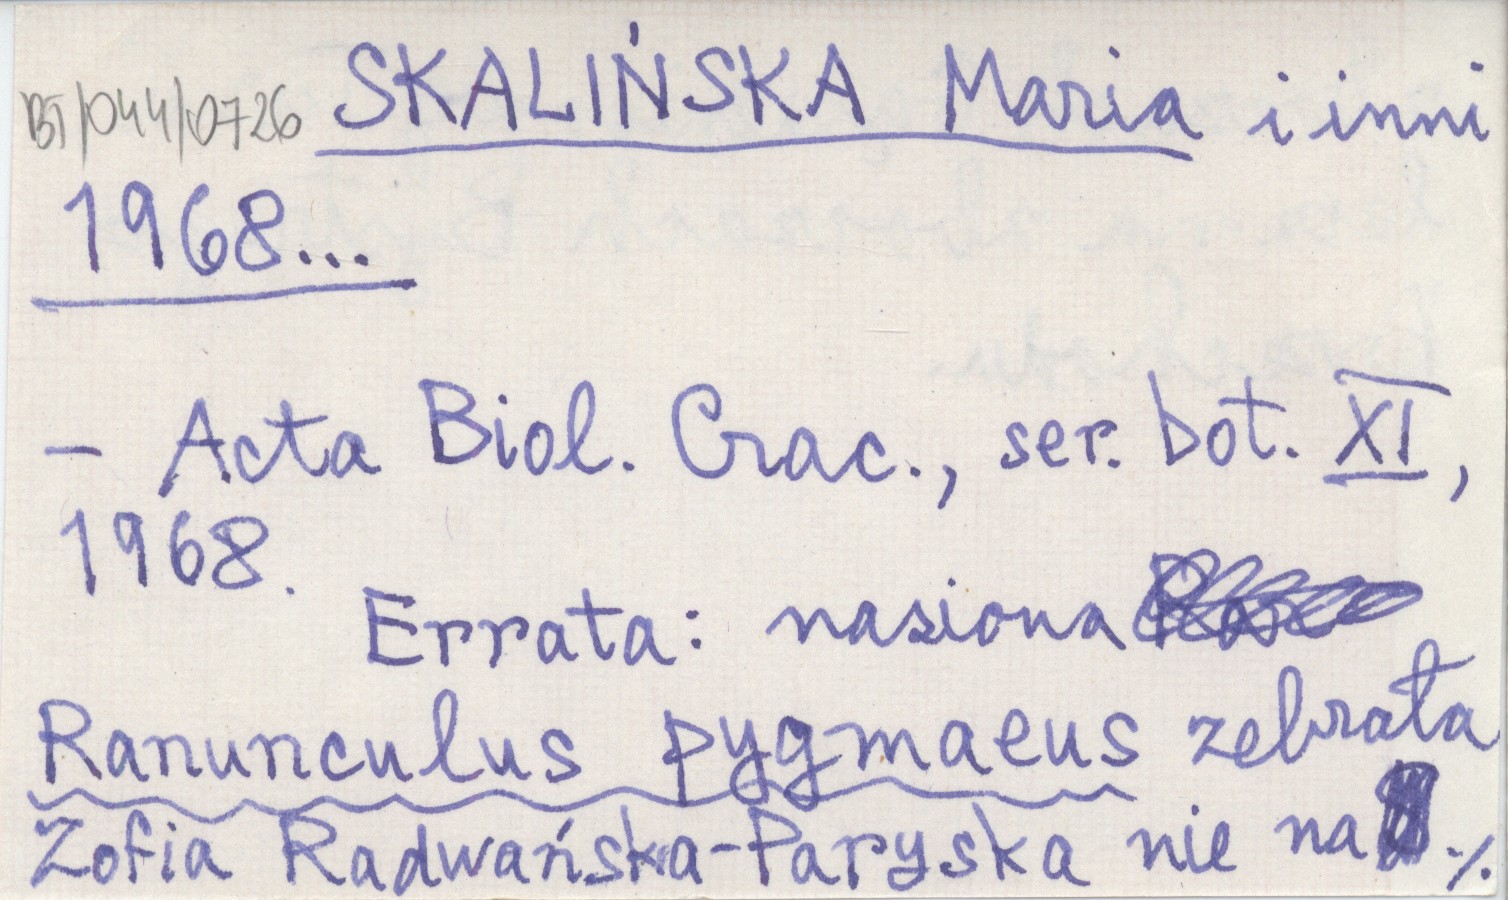 BT/044/0726 SKALIŃSKA Maria i inni
1968...
– Acta Biol. Crac., ser. bot. XI,
1968.
Errata: nasiona
Ranunculus pygmaeus zebrała
Zofia Radwańska-Paryska nie na ./.